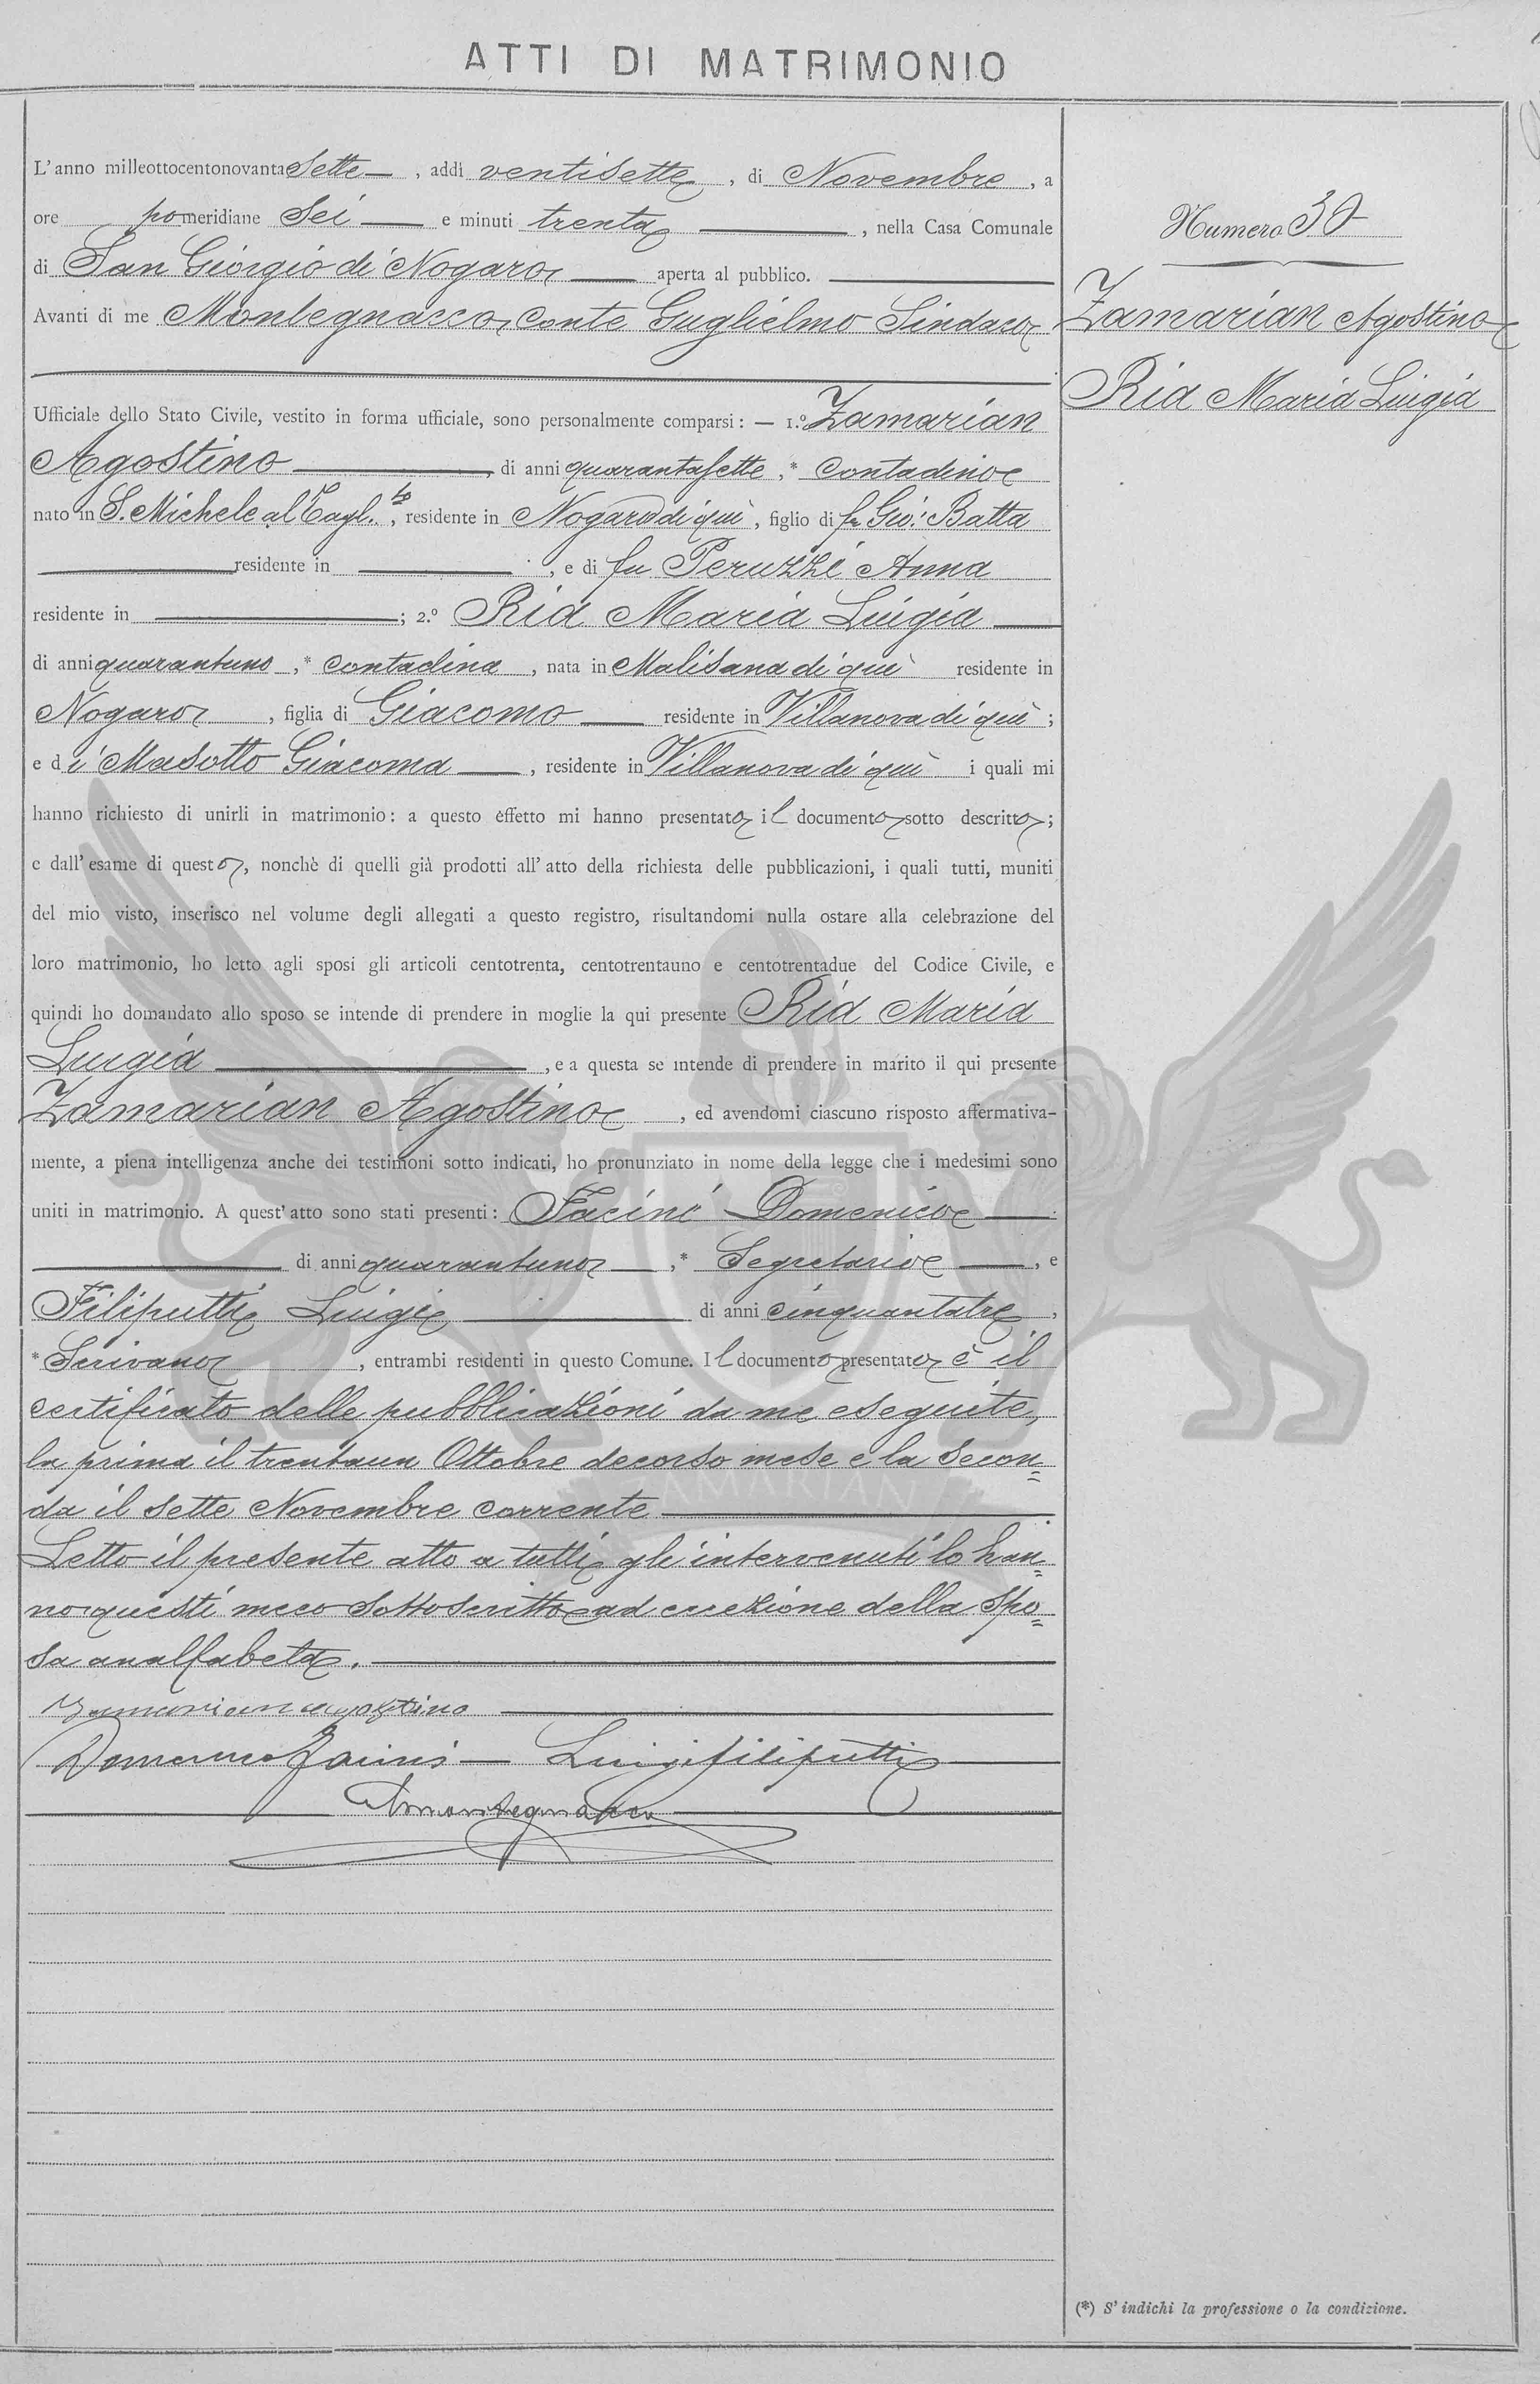 ATTI DI MATRIMONIO
L'anno milleottocentonovanta Sette, addì ventisette, di Novembre, a
ore pomeridiane Sei e minuti trenta, nella Casa Comunale
di San Giorgio di Nogaro aperta al pubblico.
Avanti di me Montegnacco Conte Guglielmo Sindaco
Ufficiale dello Stato Civile, vestito in forma ufficiale, sono personalmente comparsi: — 1.º Zamarian
Agostino, di anni quarantasette,* Contadino
nato in S. Michele al Tagl.to, residente in Nogaro di qui, figlio di fu Gio: Batta
residente in, e di fu Peruzzi Anna
residente in; 2.º Rid Maria Luigia
di anni quarantuno,* Contadina, nata in Malisana di qui residente in
Nogaro, figlia di Giacomo residente in Villanova di qui;
e di Masotto Giacoma, residente in Villanova di qui i quali mi
hanno richiesto di unirli in matrimonio: a questo effetto mi hanno presentato il documento sotto descritto;
e dall'esame di questo, nonchè di quelli già prodotti all'atto della richiesta delle pubblicazioni, i quali tutti, muniti
del mio visto, inserisco nel volume degli allegati a questo registro, risultandomi nulla ostare alla celebrazione del
loro matrimonio, ho letto agli sposi gli articoli centotrenta, centotrentauno e centotrentadue del Codice Civile, e
quindi ho domandato allo sposo se intende di prendere in moglie la qui presente Rid Maria
Luigia, e a questa se intende di prendere in marito il qui presente
Zamarian Agostino, ed avendomi ciascuno risposto affermativa-
mente, a piena intelligenza anche dei testimoni sotto indicati, ho pronunziato in nome della legge che i medesimi sono
uniti in matrimonio. A quest'atto sono stati presenti: Facini Domenico
di anni quarantuno,* Segretario, e
Filiputti Luigi di anni cinquantatre,
* Scrivano, entrambi residenti in questo Comune. Il documento presentato è il
certificato delle pubblicazioni da me eseguite,
la prima il trentaun Ottobre decorso mese e la secon=
da il sette Novembre corrente
Letto il presente atto a tutti gli intervenuti lo han=
no questi meco sottoscritto ad eccezione della spo=
sa analfabeta.
Zamarian agostino
Domenico Facini — Luigi Filiputti
Montegnacco
Numero 30
Zamarian Agostino
Rid Maria Luigia
ZAMARIAN
(*) S'indichi la professione o la condizione.